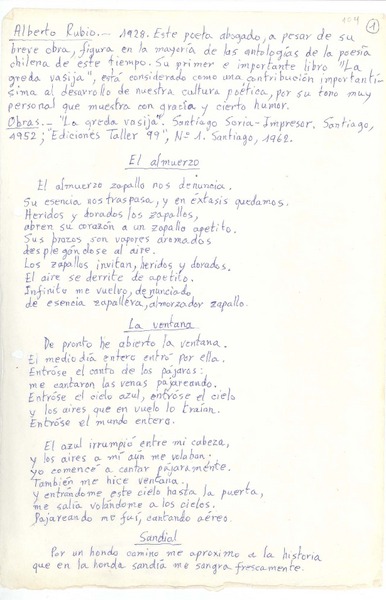 104
1
Alberto Rubio.- 1928. Este poeta abogado, a pesar de su
breve obra, figura en la mayoría de las antologías de la poesía
chilena de este tiempo. Su primer e importante libro "La
greda vasija", está considerado como una contribución importantí-
sima al desarrollo de nuestra cultura poética, por su tono muy
personal que muestra con gracia y cierto humor.
Obras.- "La greda vasija". Santiago Soria-Impresor. Santiago,
1952; "Ediciones Taller 99", Nº 1. Santiago, 1962.
El almuerzo
El almuerzo zapallo nos denuncia.
Su esencia nos traspasa, y en éxtasis quedamos.
Heridos y dorados los zapallos,
abren su corazón a un zapallo apetito.
Sus brazos son vapores aromados
desplegándose al aire.
Los zapallos invitan, heridos y dorados.
El aire se derrite de apetito.
Infinito me vuelvo, denunciado
de esencia zapallera, almorzador zapallo.
La ventana
De pronto he abierto la ventana.
El mediodía entero entró por ella.
Entróse el canto de los pájaros:
me cantaron las venas pajareando.
Entróse el cielo azul, entróse el cielo
y los aires que en vuelo lo traían.
Entróse el mundo entero.
El azul irrumpió entre mi cabeza,
y los aires a mí aún me volaban:
yo comencé a cantar pájaramente.
También me hice ventana:
y entrándome este cielo hasta la puerta,
me salía volándome a los cielos.
Pajareando me fuí, cantando aéreo.
Sandial
Por un hondo camino me aproximo a la historia
que en la honda sandía me sangra frescamente.